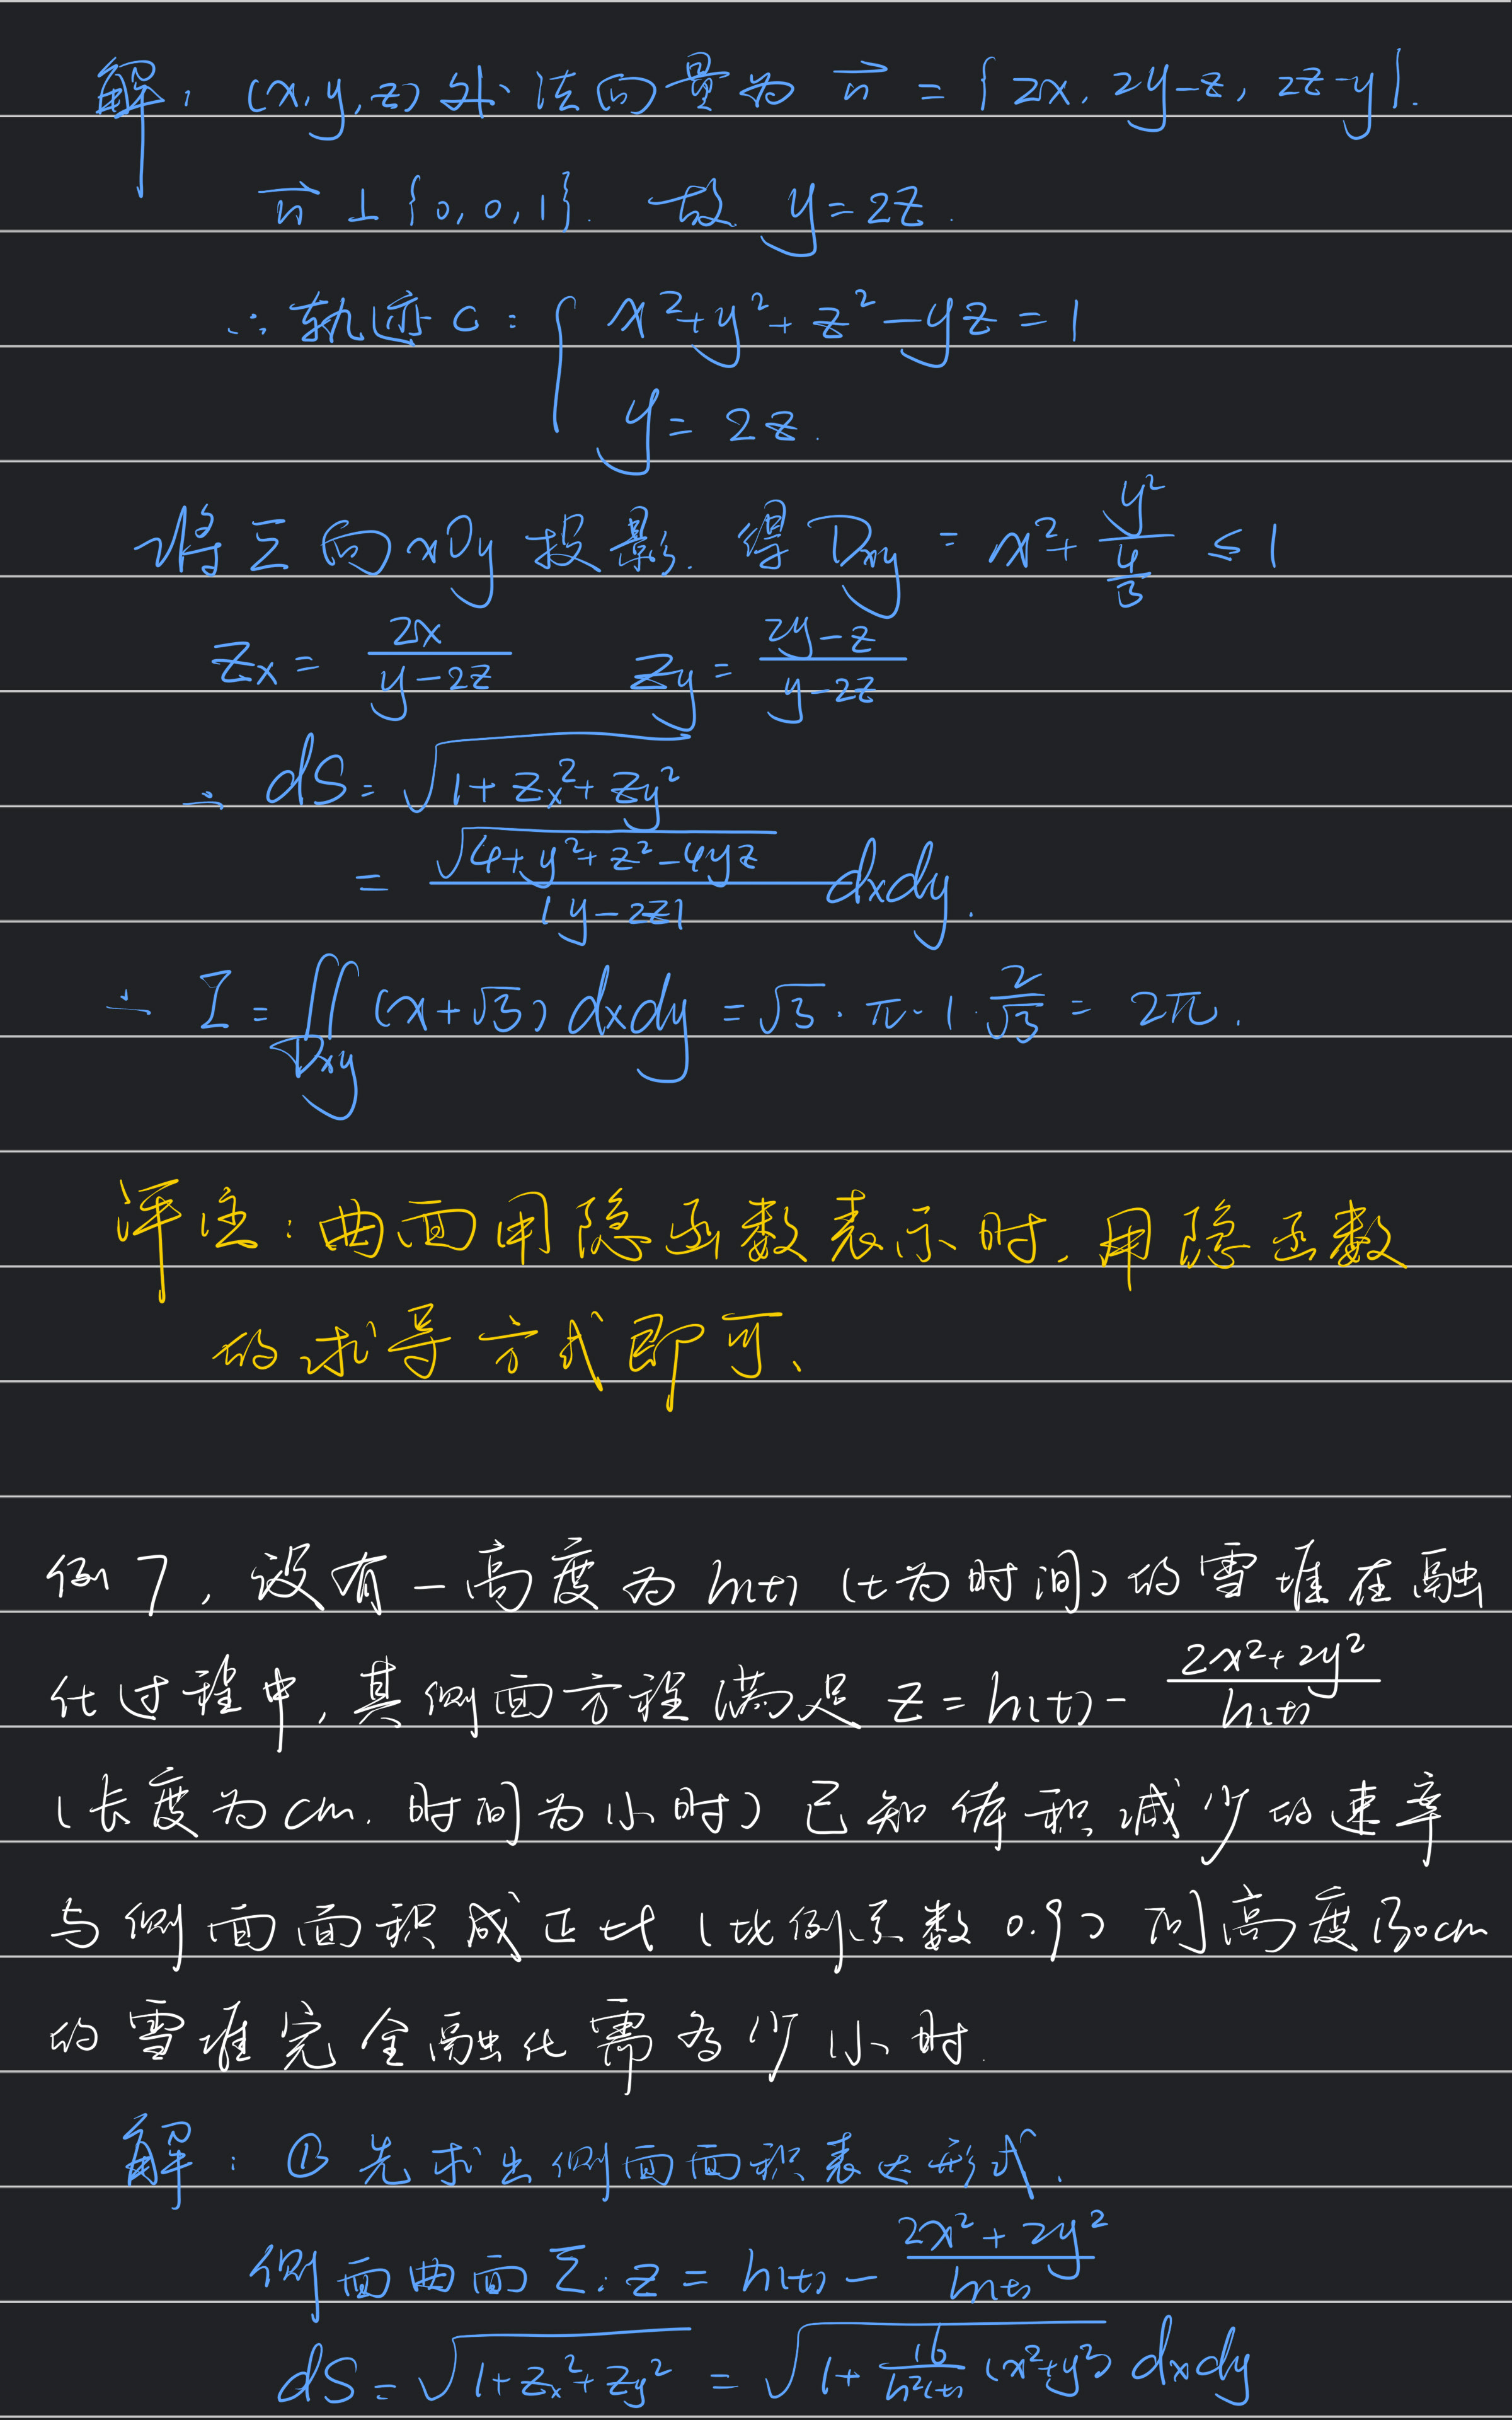 解: (x, y, z) 外法向量为 n⃗ = {2x, 2y-z, 2z-y}.
n⃗ ⊥ {0, 0, 1}. 故 y=2z.
∴ 轨迹 C: { x²+y²+z²-yz=1
y=2z.
将Σ向xOy投影. 得 Dxy = x²+ y²/(4/3) ≤ 1
Zx = 2x/(y-2z)  Zy = (2y-z)/(y-2z)
∴ dS = √(1+Zx²+Zy²)
= √(4+y²+z²-4yz)/|y-2z| dxdy.
∴ I = ∬Dxy (x+√3) dxdy = √3·π·1·2/√3 = 2π.
评注: 曲面用隐函数表示时, 用隐函数
的求导方式即可、
例7, 设有一高度为h(t) (t为时间) 的雪堆在融
化过程中, 其侧面方程满足 z=h(t)- (2x²+2y²)/h(t)
(长度为cm. 时间为小时) 已知体积减少的速率
与侧面面积成正比 (比例系数 0.9) 问高度130cm
的雪堆完全融化需多少小时.
解: ① 先求出侧面面积表达形式.
侧面曲面Σ: z = h(t)- (2x²+2y²)/h(t)
dS = √(1+Zx²+Zy²) = √(1+ 16/h²(t) (x²+y²)) dxdy